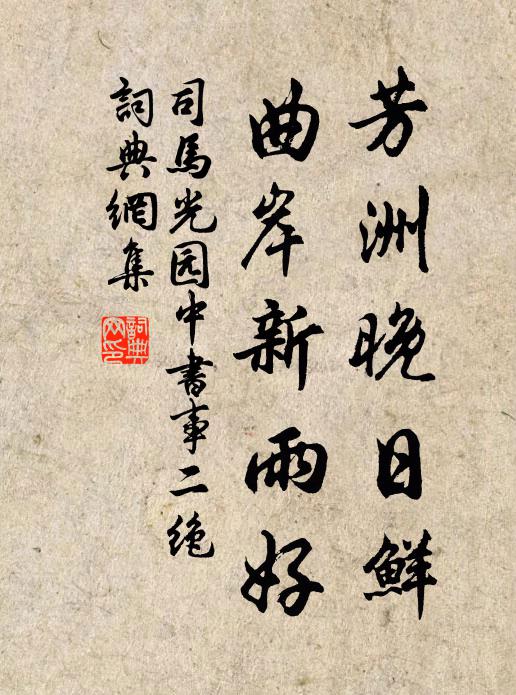 芳洲晚日鮮
曲岸新雨好
司馬光园中書事二绝
詞典網集
詞典網印